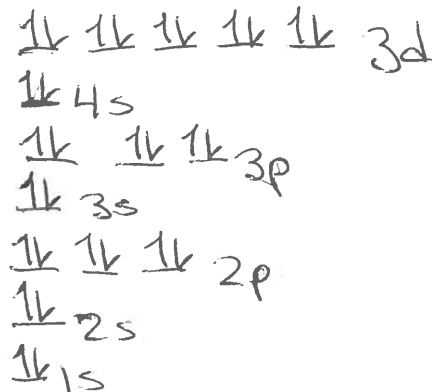 ⥮ ⥮ ⥮ ⥮ ⥮ 3d
⥮ 4s
⥮ ⥮ ⥮ 3p
⥮ 3s
⥮ ⥮ ⥮ 2p
⥮ 2s
⥮ 1s